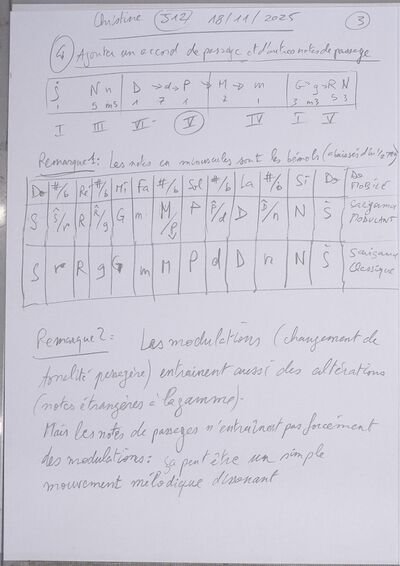 Christine J12/ 18/11/2025 3
4 Ajouter un accord de passage et d'autres notes de passage
Ṡ N n D → d → P → M → m G → g → R N
1 5 m5 1 7 1 2 1 3 m3 5 3
I III VI V IV I V
Remarque 1: Les notes en minuscules sont les bémols (abaissés d'un
Do #/b Ré #/b Mi Fa #/b Sol #/b La #/b Si Do DO MOBILE
S R G m M/P P D N Ṡ Sargama MODULANT
S r R g G m M P d D n N Ṡ Sargama Classique
Remarque 2: Les modulations (changement de
tonalité passagère) entrainent aussi des altérations
(notes étrangères à la gamme).
Mais les notes de passages n'entraînent pas forcément
des modulations: ça peut être un simple
mouvement mélodique dissonant